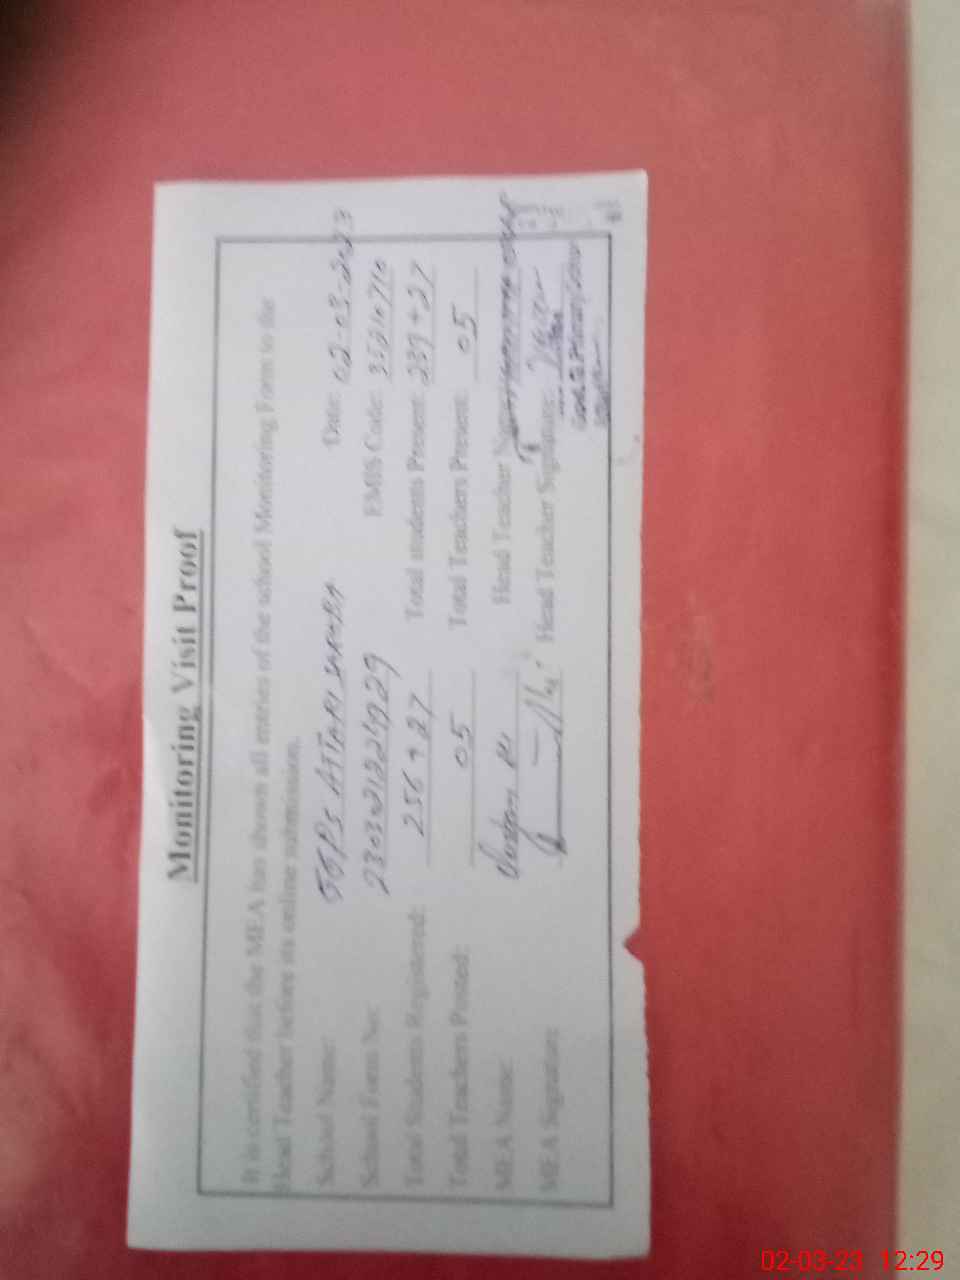 Monitoring Visit Proof
It is certified that the MEA has shown all entries of the school Monitoring Form to the
Head Teacher before its online submission.
School Name: GGPS ATTARI Date: 02-03-2023
School Form No: EMIS Code: 35210710
Total Students Registered: 256 + 27 Total students Present: 239 + 27
Total Teachers Posted: 05 Total Teachers Present: 05
MEA Name: Head Teacher Name:
MEA Signature: Head Teacher Signature:
02-03-23 12:29